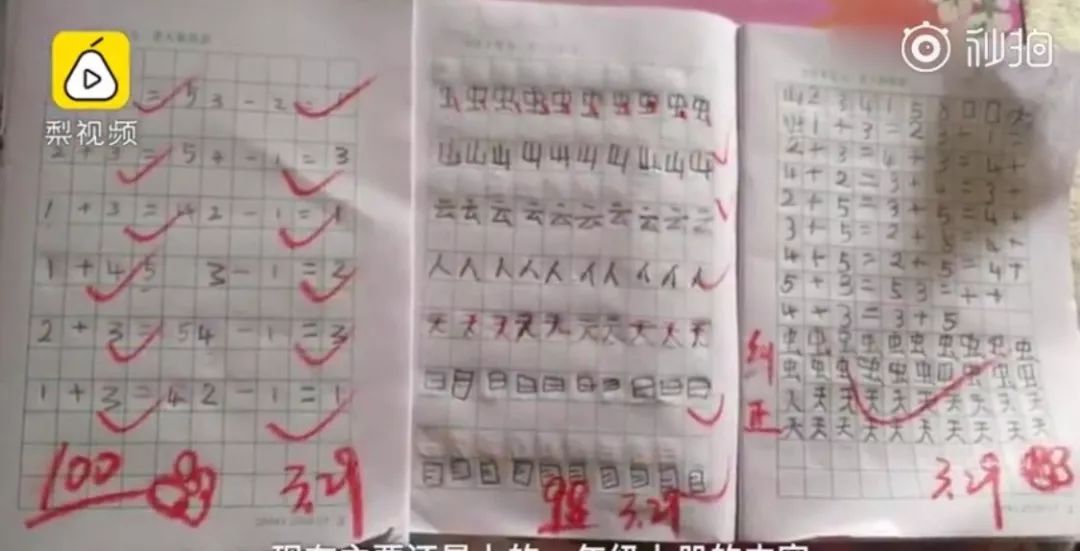 梨视频
秒拍
= 5 3 - 2 =
2 + 3 = 5 + - 1 = 3
1 + 3 = 4 2 - 1 = 1
1 + 4 5 3 - 1 = 2
2 + 3 = 5 4 - 1 = 3
1 + 3 = 4 2 - 1 = 1
100
3.29
虫虫虫虫虫虫虫虫虫虫
山山山山山山山山山山
云云云云云云云云云云
人人人人人人人人人人
天天天天天天天天天天
日日日日日日日日日日
目目目目目目目目目目
98 3.29
山 2 3 4 1 5
1 + 3 = 2
2 + 3 = 4 + 3 = 4 +
4 + 2 = 3 + 4 = 3 +
2 + 5 = 3 + 5 = 4 +
3 + 5 = 2 + 5 = 4 +
4 + 5 = 2 + 5 = 4 +
5 + 3 = 5 3 = + +
4 + 3 = 3 + 5
虫虫虫虫虫虫虫虫虫虫
虫虫虫虫虫虫虫虫虫虫
人天天天天天天天天天
天天天天天天天天天天
纠正
3.29